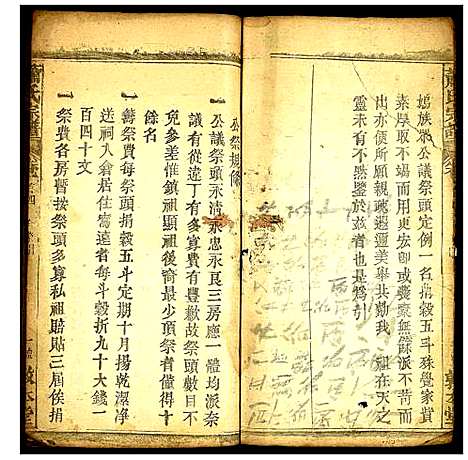 鳩族眾公議祭頭定例一名捐穀五斗殊覺家貲
素厚取不竭而用更宏即或囊橐無餘派不苛而
力亦便所願親疎遐邇美舉共勷我 祖在天之
靈未有不然鑒於茲者也是爲引
公祭規條
一公議祭頭永清永忠永良三房應一體均派奈
議以從違丁有多寡費有豐歉故祭頭數目不
免多差惟鎮祖顯祖後裔最少頂祭者僅得十
餘名
一籌祭費每祭頭捐穀五斗定期十月揚乾潔淨
送祠入倉居住窵遠者每斗穀折九十大錢一
百四十文
一祭費各房暫按祭頭多寡私祖賠貼三屆俟捐
蕭氏宗譜
敦本堂
蕭氏宗譜
敦本堂